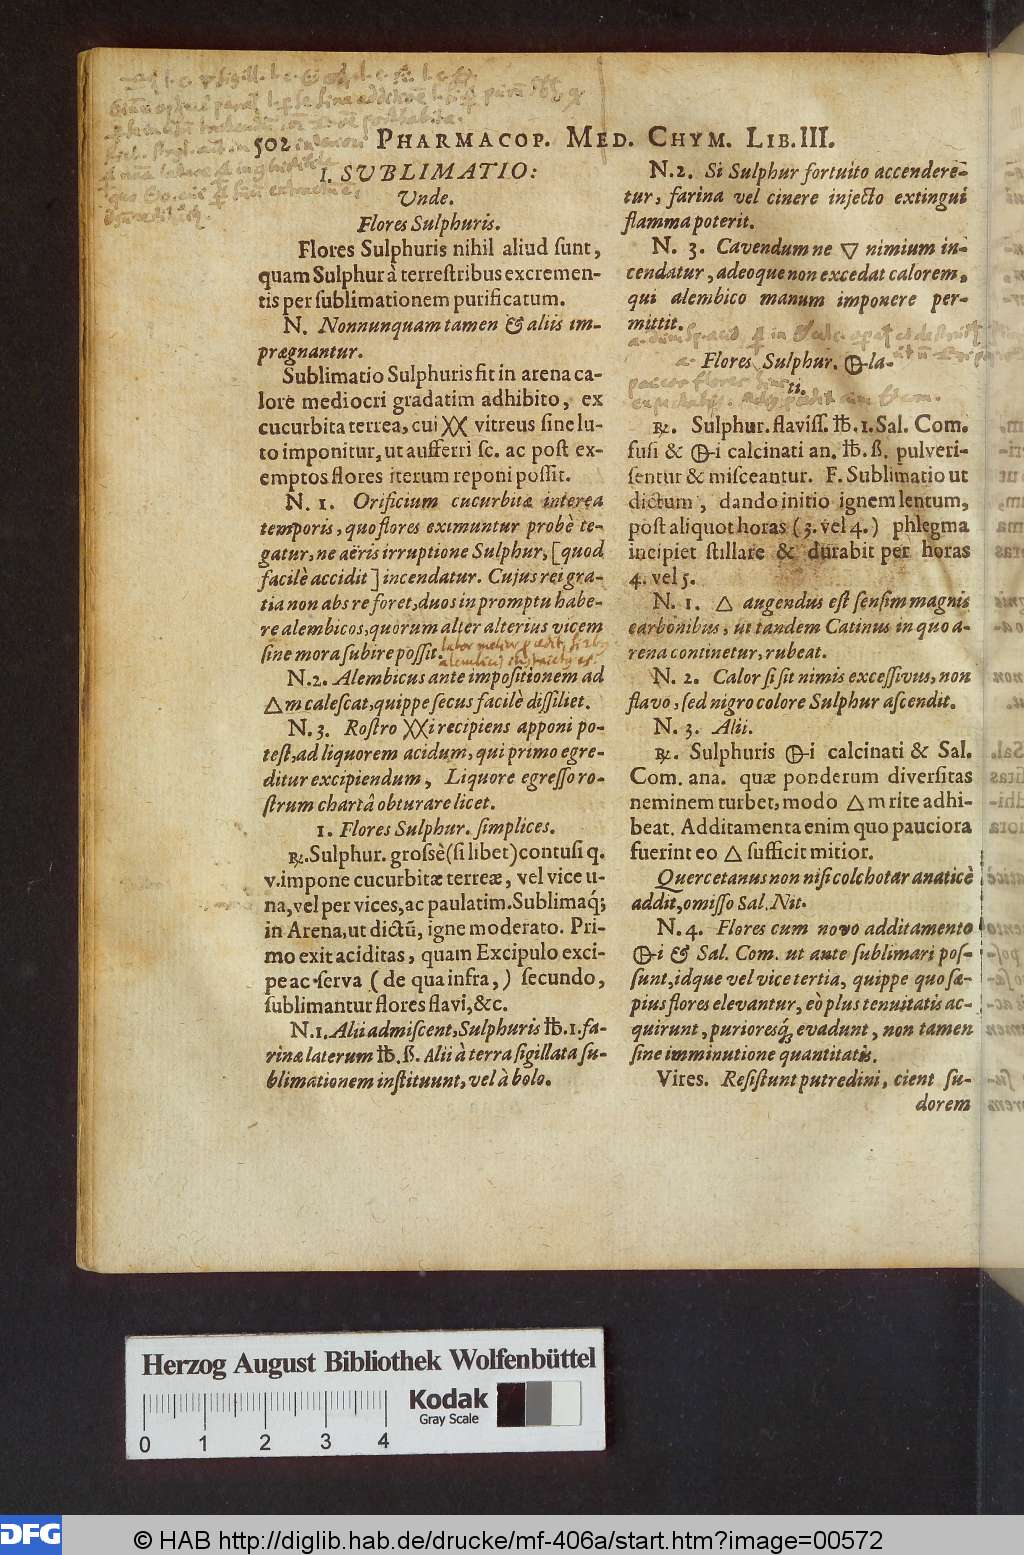 502 PHARMACOP. MED. CHYM. LIB. III.
I. SUBLIMATIO:
Unde.
Flores Sulphuris.
Flores Sulphuris nihil aliud ſunt,
quam Sulphur â terreſtribus excremen-
tis per ſublimationem purificatum.
N. Nonnunquam tamen & aliis im-
prægnantur.
Sublimatio Sulphuris fit in arena ca-
lore mediocri gradatim adhibito, ex
cucurbita terrea, cui XX vitreus ſine lu-
to imponitur, ut aufferri ſc. ac poſt ex-
emptos flores iterum reponi poſſit.
N. 1. Orificium cucurbitæ interea
temporis, quo flores eximuntur probè te-
gatur, ne aëris irruptione Sulphur, [quod
facilè accidit] incendatur. Cujus rei gra-
tia non abs re foret, duos in promptu habe-
re alembicos, quorum alter alterius vicem
ſine mora ſubire poſſit.
N. 2. Alembicus ante impoſitionem ad
△m caleſcat, quippe ſecus facilè diſſiliet.
N. 3. Roſtro XXi recipiens apponi po-
teſt, ad liquorem acidum, qui primo egre-
ditur excipiendum, Liquore egreſſo ro-
ſtrum chartâ obturare licet.
1. Flores Sulphur. ſimplices.
℞. Sulphur. groſsè (ſi libet) contuſi q.
v. impone cucurbitæ terreæ, vel vice u-
na, vel per vices, ac paulatim. Sublimaq́;
in Arena, ut dictũ, igne moderato. Pri-
mo exit aciditas, quam Excipulo exci-
pe ac ſerva (de qua infra,) ſecundo,
ſublimantur flores flavi, &c.
N. 1. Alii admiſcent, Sulphuris ℔. 1. fa-
rinæ laterum ℔. ß. Alii à terra ſigillata ſu-
blimationem inſtituunt, vel à bolo.
N. 2. Si Sulphur fortuito accendere-
tur, farina vel cinere injecto extingui
flamma poterit.
N. 3. Cavendum ne ▽ nimium in-
cendatur, adeoque non excedat calorem,
qui alembico manum imponere per-
mittit.
Flores Sulphur. 🜕-la-
ti.
℞. Sulphur. flaviſſ. ℔. 1. Sal. Com.
fuſi & 🜕-i calcinati an. ℔. ß. pulveri-
ſentur & miſceantur. F. Sublimatio ut
dictum, dando initio ignem lentum,
poſt aliquot horas (3. vel 4.) phlegma
incipiet ſtillare & durabit per horas
4. vel 5.
N. 1. △ augendus eſt ſenſim magnis
carbonibus, ut tandem Catinus in quo a-
rena continetur, rubeat.
N. 2. Calor ſi ſit nimis exceſſivus, non
flavo, ſed nigro colore Sulphur aſcendit.
N. 3. Alii.
℞. Sulphuris 🜕-i calcinati & Sal.
Com. ana. quæ ponderum diverſitas
neminem turbet, modo △m rite adhi-
beat. Additamenta enim quo pauciora
fuerint eo △ ſufficit mitior.
Quercetanus non niſi colchotar anaticè
addit, omiſſo Sal. Nit.
N. 4. Flores cum novo additamento
🜕-i & Sal. Com. ut ante ſublimari poſ-
ſunt, idque vel vice tertia, quippe quo ſæ-
pius flores elevantur, eò plus tenuitatis ac-
quirunt, purioresq́; evadunt, non tamen
ſine imminutione quantitatis.
Vires. Reſiſtunt putredini, cient ſu-
dorem
Herzog August Bibliothek Wolfenbüttel
Kodak
Gray Scale
0 1 2 3 4
DFG
© HAB http://diglib.hab.de/drucke/mf-406a/start.htm?image=00572